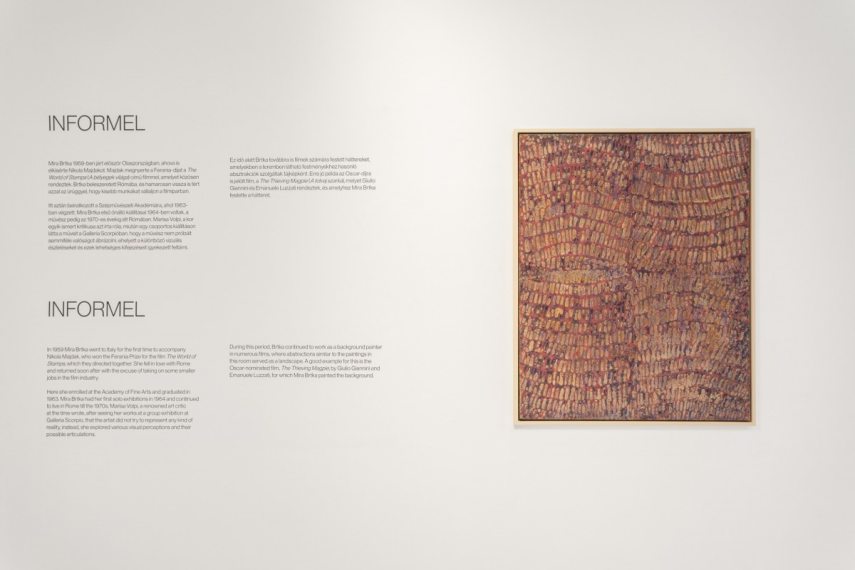 INFORMEL
Mira Brtka 1959-ben járt először Olaszországban, ahova is
elkísérte Nikola Majdakot. Majdak megnyerte a Ferania-díjat a The
World of Stamps (A bélyegek világa) című filmmel, amelyet közösen
rendeztek. Brtka beleszeretett Rómába, és hamarosan vissza is tért
azzal az ürüggyel, hogy kisebb munkákat vállaljon a filmiparban.
Itt aztán beiratkozott a Szépművészeti Akadémiára, ahol 1963-
ban végzett. Mira Brtka első önálló kiállításai 1964-ben voltak, a
művész pedig az 1970-es évekig élt Rómában. Marisa Volpi, a kor
egyik ismert kritikusa azt írta róla, miután egy csoportos kiállításon
látta a műveit a Galleria Scorpióban, hogy a művész nem próbált
semmiféle valóságot ábrázolni, ehelyett a különböző vizuális
észleléseket és ezek lehetséges kifejezéseit igyekezett feltárni.
Ez idő alatt Brtka továbbra is filmek számára festett háttereket,
amelyekben a teremben látható festményekhez hasonló
absztrakciók szolgáltak tájképként. Erre jó példa az Oscar-díjra
is jelölt film, a The Thieving Magpie (A tolvaj szarka), melyet Giulio
Giannini és Emanuele Luzzati rendeztek, és amelyhez Mira Brtka
festette a hátteret.
INFORMEL
In 1959 Mira Brtka went to Italy for the first time to accompany
Nikola Majdak, who won the Ferania Prize for the film The World of
Stamps, which they directed together. She fell in love with Rome
and returned soon after with the excuse of taking on some smaller
jobs in the film industry.
Here she enrolled at the Academy of Fine Arts and graduated in
1963. Mira Brtka had her first solo exhibitions in 1964 and continued
to live in Rome till the 1970s. Marisa Volpi, a renowned art critic
at the time wrote, after seeing her work at a group exhibition at
Galleria Scorpio, that the artist did not try to represent any kind of
reality, instead, she explored various visual perceptions and their
possible articulations.
During this period, Brtka continued to work as a background painter
in numerous films, where abstractions similar to the paintings in
this room served as a landscape. A good example for this is the
Oscar-nominated film, The Thieving Magpie, by Giulio Giannini and
Emanuele Luzzati, for which Mira Brtka painted the background.